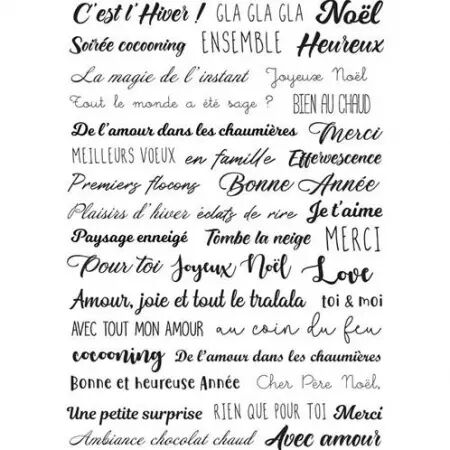 C'est l'Hiver ! GLA GLA GLA Noël
Soirée cocooning ENSEMBLE Heureux
La magie de l'instant Joyeux Noël
Tout le monde a été sage ? BIEN AU CHAUD
De l'amour dans les chaumières Merci
MEILLEURS VOEUX en famille Effervescence
Premiers flocons Bonne Année
Plaisirs d'hiver éclats de rire Je t'aime
Paysage enneigé Tombe la neige MERCI
Pour toi Joyeux Noël Love
Amour, joie et tout le tralala toi & moi
AVEC TOUT MON AMOUR au coin du feu
cocooning De l'amour dans les chaumières
Bonne et heureuse Année Cher Père Noël,
Une petite surprise RIEN QUE POUR TOI Merci
Ambiance chocolat chaud Avec amour